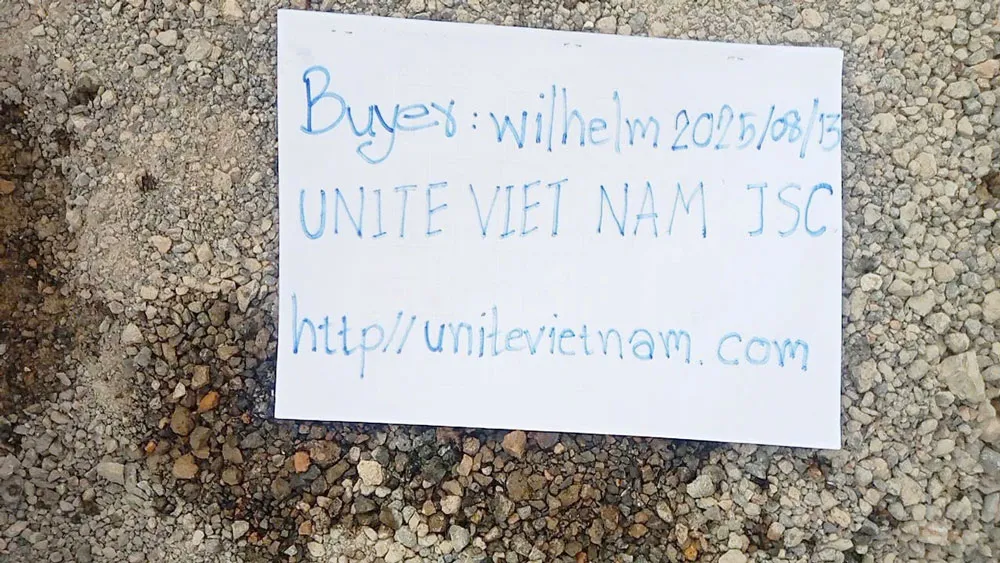 Buyer: wilhelm 2025/08/13
UNITE VIET NAM JSC
http//unitevietnam.com